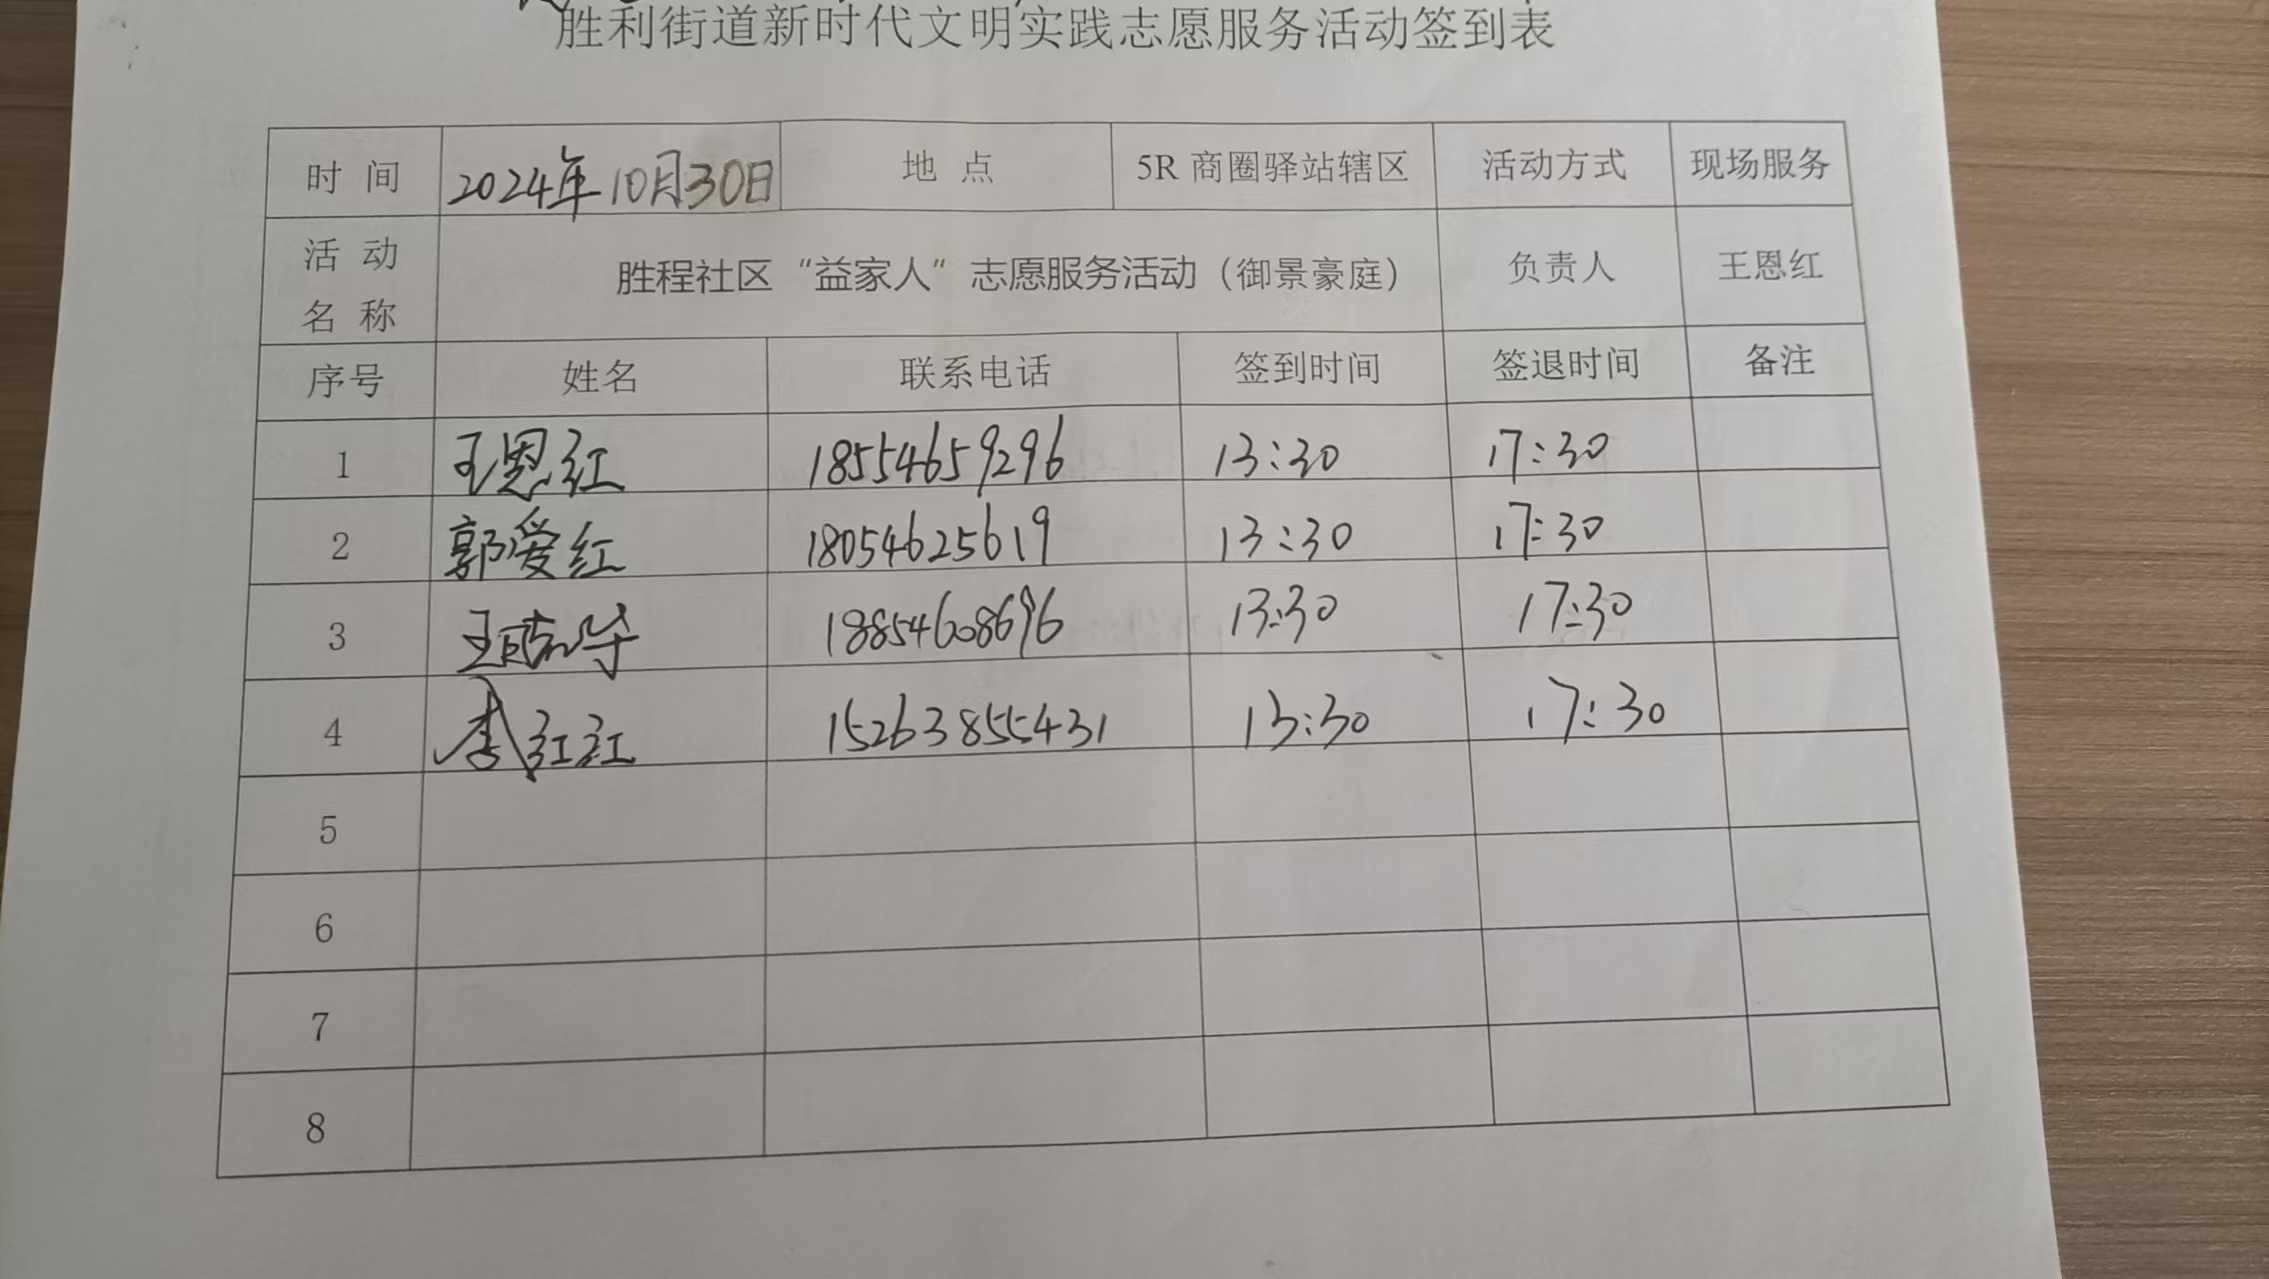 胜利街道新时代文明实践志愿服务活动签到表
时 间 2024年10月30日 地 点 5R 商圈驿站辖区 活动方式 现场服务
活 动 名 称 胜程社区“益家人”志愿服务活动（御景豪庭） 负责人 王恩红
序号 姓名 联系电话 签到时间 签退时间 备注
1 王恩红 18554659296 13:30 17:30
2 郭爱红 18054625619 13:30 17:30
3 王 18854608696 13:30 17:30
4 李红红 15263855431 13:30 17:30
5
6
7
8